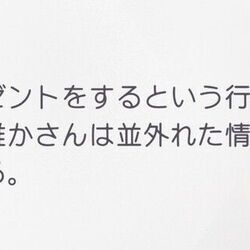 ゼントをするという行
誰かさんは並外れた情
る。